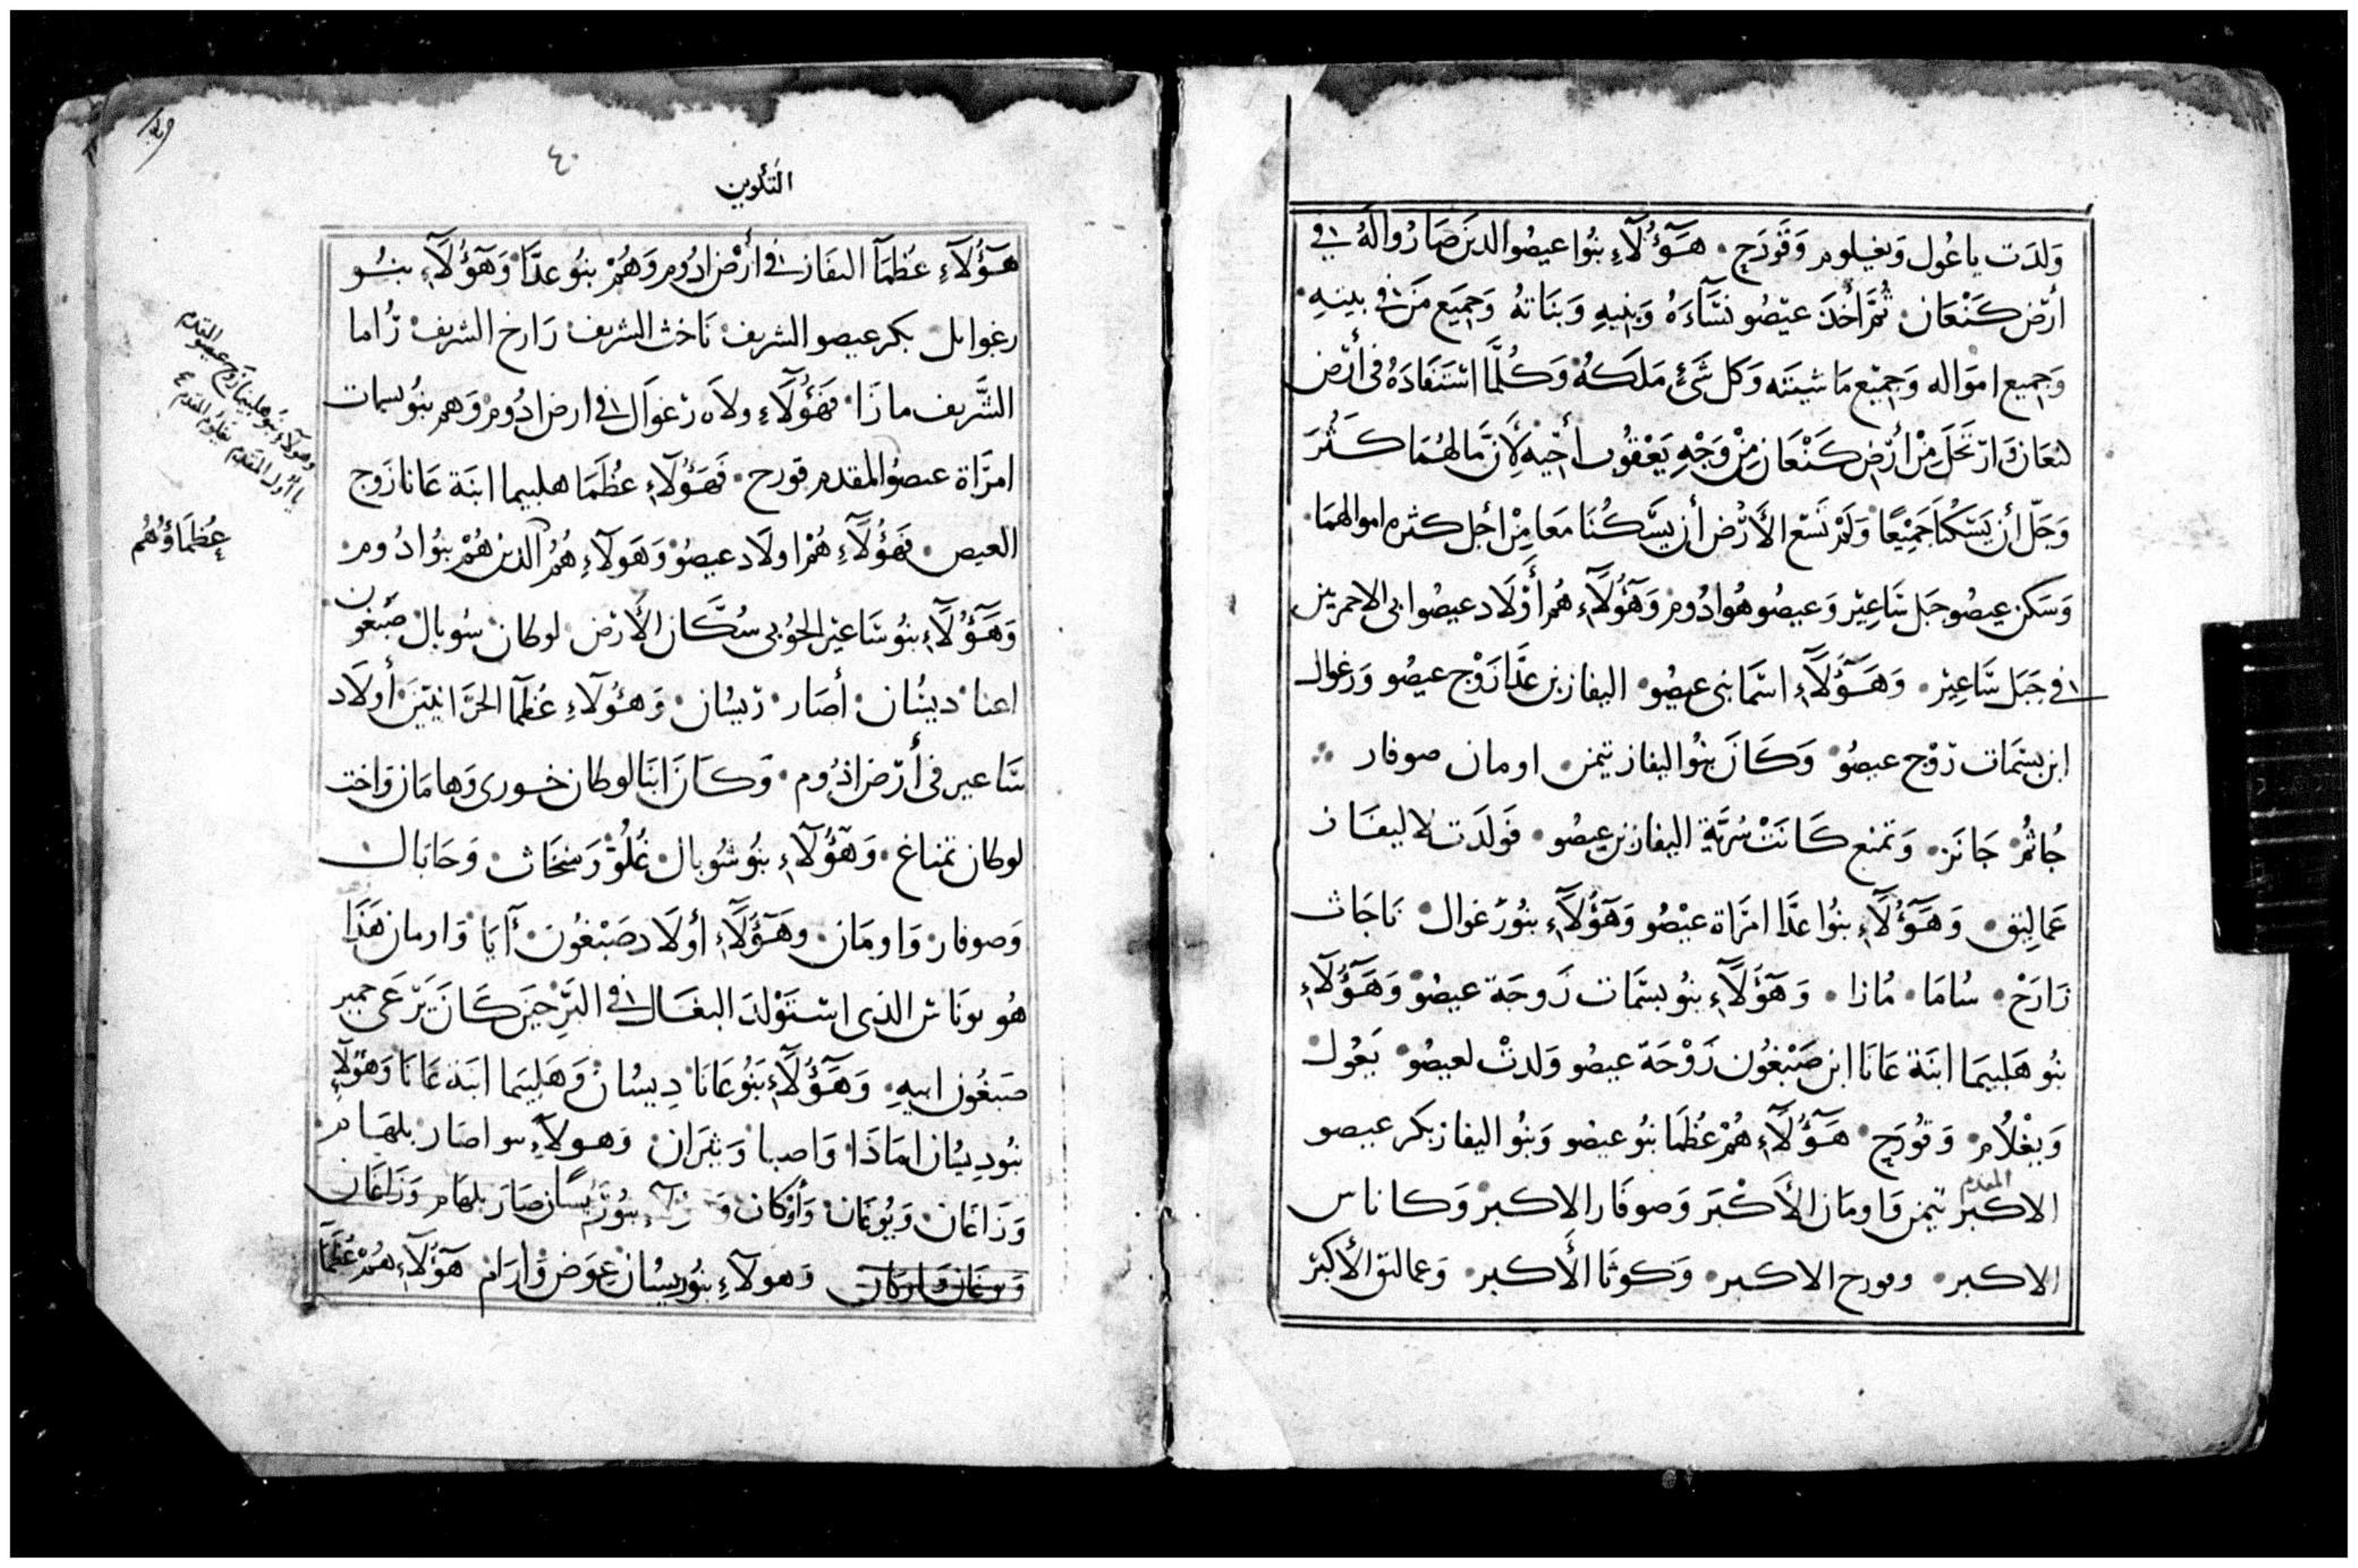 ولدت ياعول ويغيلوم وقورح هَؤُلَاءِ بنوا عيصوا الدين صَاروا له في
أرض كَنعان ثمَّ أخذ عيصو نسَّآءَهُ وبنيهِ وبناته وجميع مَن في بيتهِ
وجميع امواله وجميع ماشيته وكل شئ ملكهُ وكلَّما استفادهُ في أرض
كنعان وارتحل من أرض كنعان من وجه يعقوب أخيه لأن مالهما كثر
وجل أن يسكنا جميعًا ولم تسع الأرض أن يسكنا معا من أجل كثره اموالهما
وسكن عيصو جبل ساعير وعيصو هوا دوم وهؤلاء هم أولاد عيصوا ابى الاحمريين
في جبل ساعير وهؤلاء اسما بنى عيصو اليفاز بن عدَّا زوج عيصو ورغوال
ابن بسمات زوج عيصو وكان بنوا اليفاز تيمن اومان صوفار
جُاثُمْ جَانَز وتمنع كَانت سُريَّة اليفاز بن عيصو فولدت لاليفاز
عَمالِيق وهؤلاء بنوا عدَّا امرَاة عيصو وهؤلاء بنو رغوال ناحَاث
زارَحْ سُامَا مُازا وهؤلاء بنو بسمات زوجة عيصو وهؤلاء
بنو هَليبَما ابنَة عَانَا ابن صَبْغُون زوْجَة عيصو ولدتْ لعيصو يَعُول
ويغلُام وقُورَح هؤلاء هُمْ عُظَما بنو عيصو وبنُو اليفاز بكر عيصو
المقدم
الاكبر تيمن وَاومَان الأكْبَر وَصوفَار الاكبر وَكاناس
الاكبر وقورح الاكبر وَكوثَا الأكبر وعمالق الأكبَر
٤٠
التكوين
هؤلآءِ عُظَمَآ اليفاز في أرض ادُوم وَهُمْ بنُو عدَّا وَهؤلَاءِ بنُو
رغوايل بكر عيصو الشريف ناخث الشريف زارخ الشريف زُاما
الشَّريف مازَا فهؤلَاءِ ولاه رغوال في ارض ادُوم وَهم بنُو بسمات
امرَاة عيصُو المقدم قورح فَهَؤلَآءِ عُظَمَا هليبما ابنَة عَانا زَوج
العيص فهؤلَاءِ هُمْ اولَاد عيصُو وَهَولآءِ هُمُ الذين هُمْ بنُوا دُوم
وَهؤلَاءِ بنُو سَاعير الحُوبى سُكَّان الأرْض لوطان سُوبال صَبغون
اعنا ديسُان أصَار ريسُان وَهؤُلآءِ عُظمَآ الحرَّانيّين أولَاد
سَّاعير فى أرْض اذُوم وكانَ ابنَا لوطان خورى وَهامَان وَاخت
لوطان تمناع وهؤُلآءِ بنُو شُوبال عُلُوْ وَمنخَاث وَحَابال
وَصوفار وَاومَان وَهؤلَآءِ أولَاد صَبْغُون آيَا وَارمان هَذَا
هُو يونَاش الذى استَوْلد البغَال في البَرِّ حينَ كَانَ يَرْعى حمير
صَبغُون ابيهِ وَهؤلَآءِ بَنُو عَانَا دِيسُان وَهَليبما ابنة عَانَا وَهؤلآءِ
بنُو دِيسُان امَاذَا وَاصبا وَيثرَان وَهولآءِ بنو اصَار بلهَام
وَزَاعَان وَيُوعَان وَأوْكان بنُو رَيسَان صَارَ بلهَام وَزَاعَان
وَيوعَان وَاوكَان وَهولآءِ بنُو ريسُان عِوَض وَارَام هؤُلَآءِ هُمْ عُظَمَا
وهؤلآءِ بنو هليبما زوج عيصو المقدم
يا أول المقدم يغلُوم المقدم ٤
عُظمَاؤُهُم